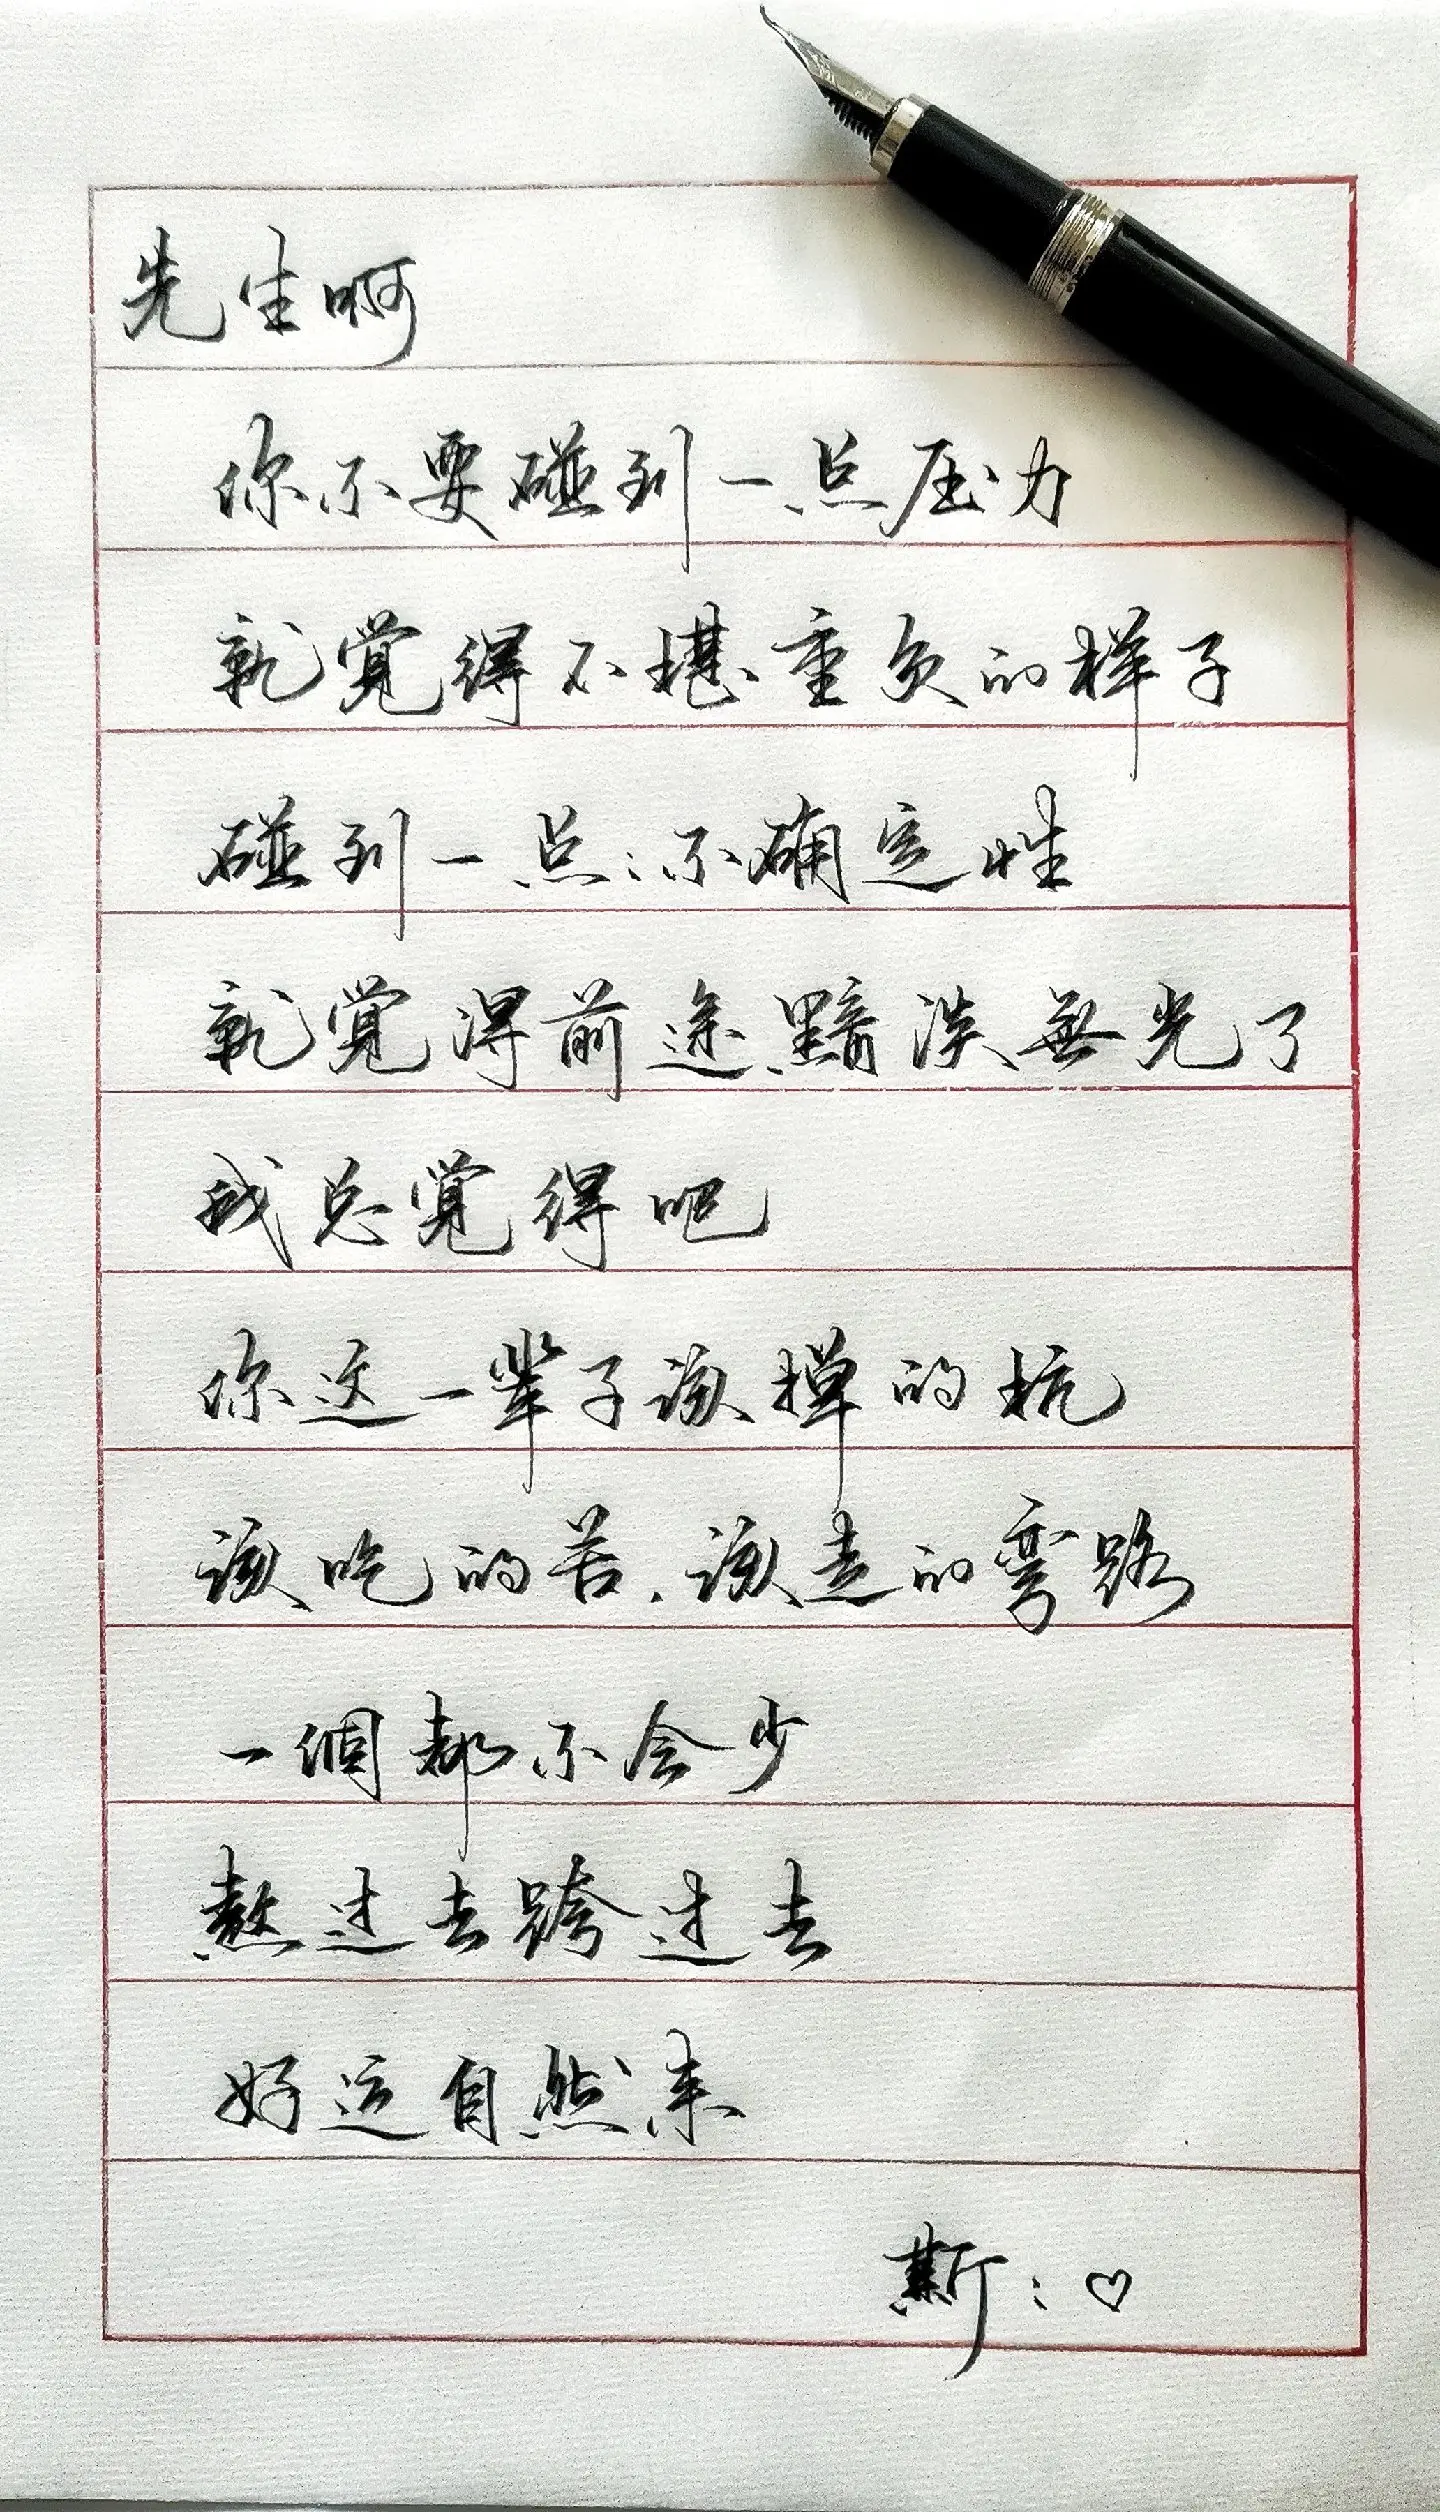 先生啊
你不要碰到一点压力
就觉得不堪重负的样子
碰到一点点不确定性
就覺得前途黯淡無光了
我总覺得吧
你这一辈子该撣的坑
该吃的苦.该走的弯路
一個都不会少
熬过去跨过去
好运自然来
斯:♡